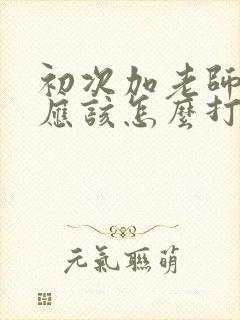 初次加老師
應該怎麼打
元氣聯萌